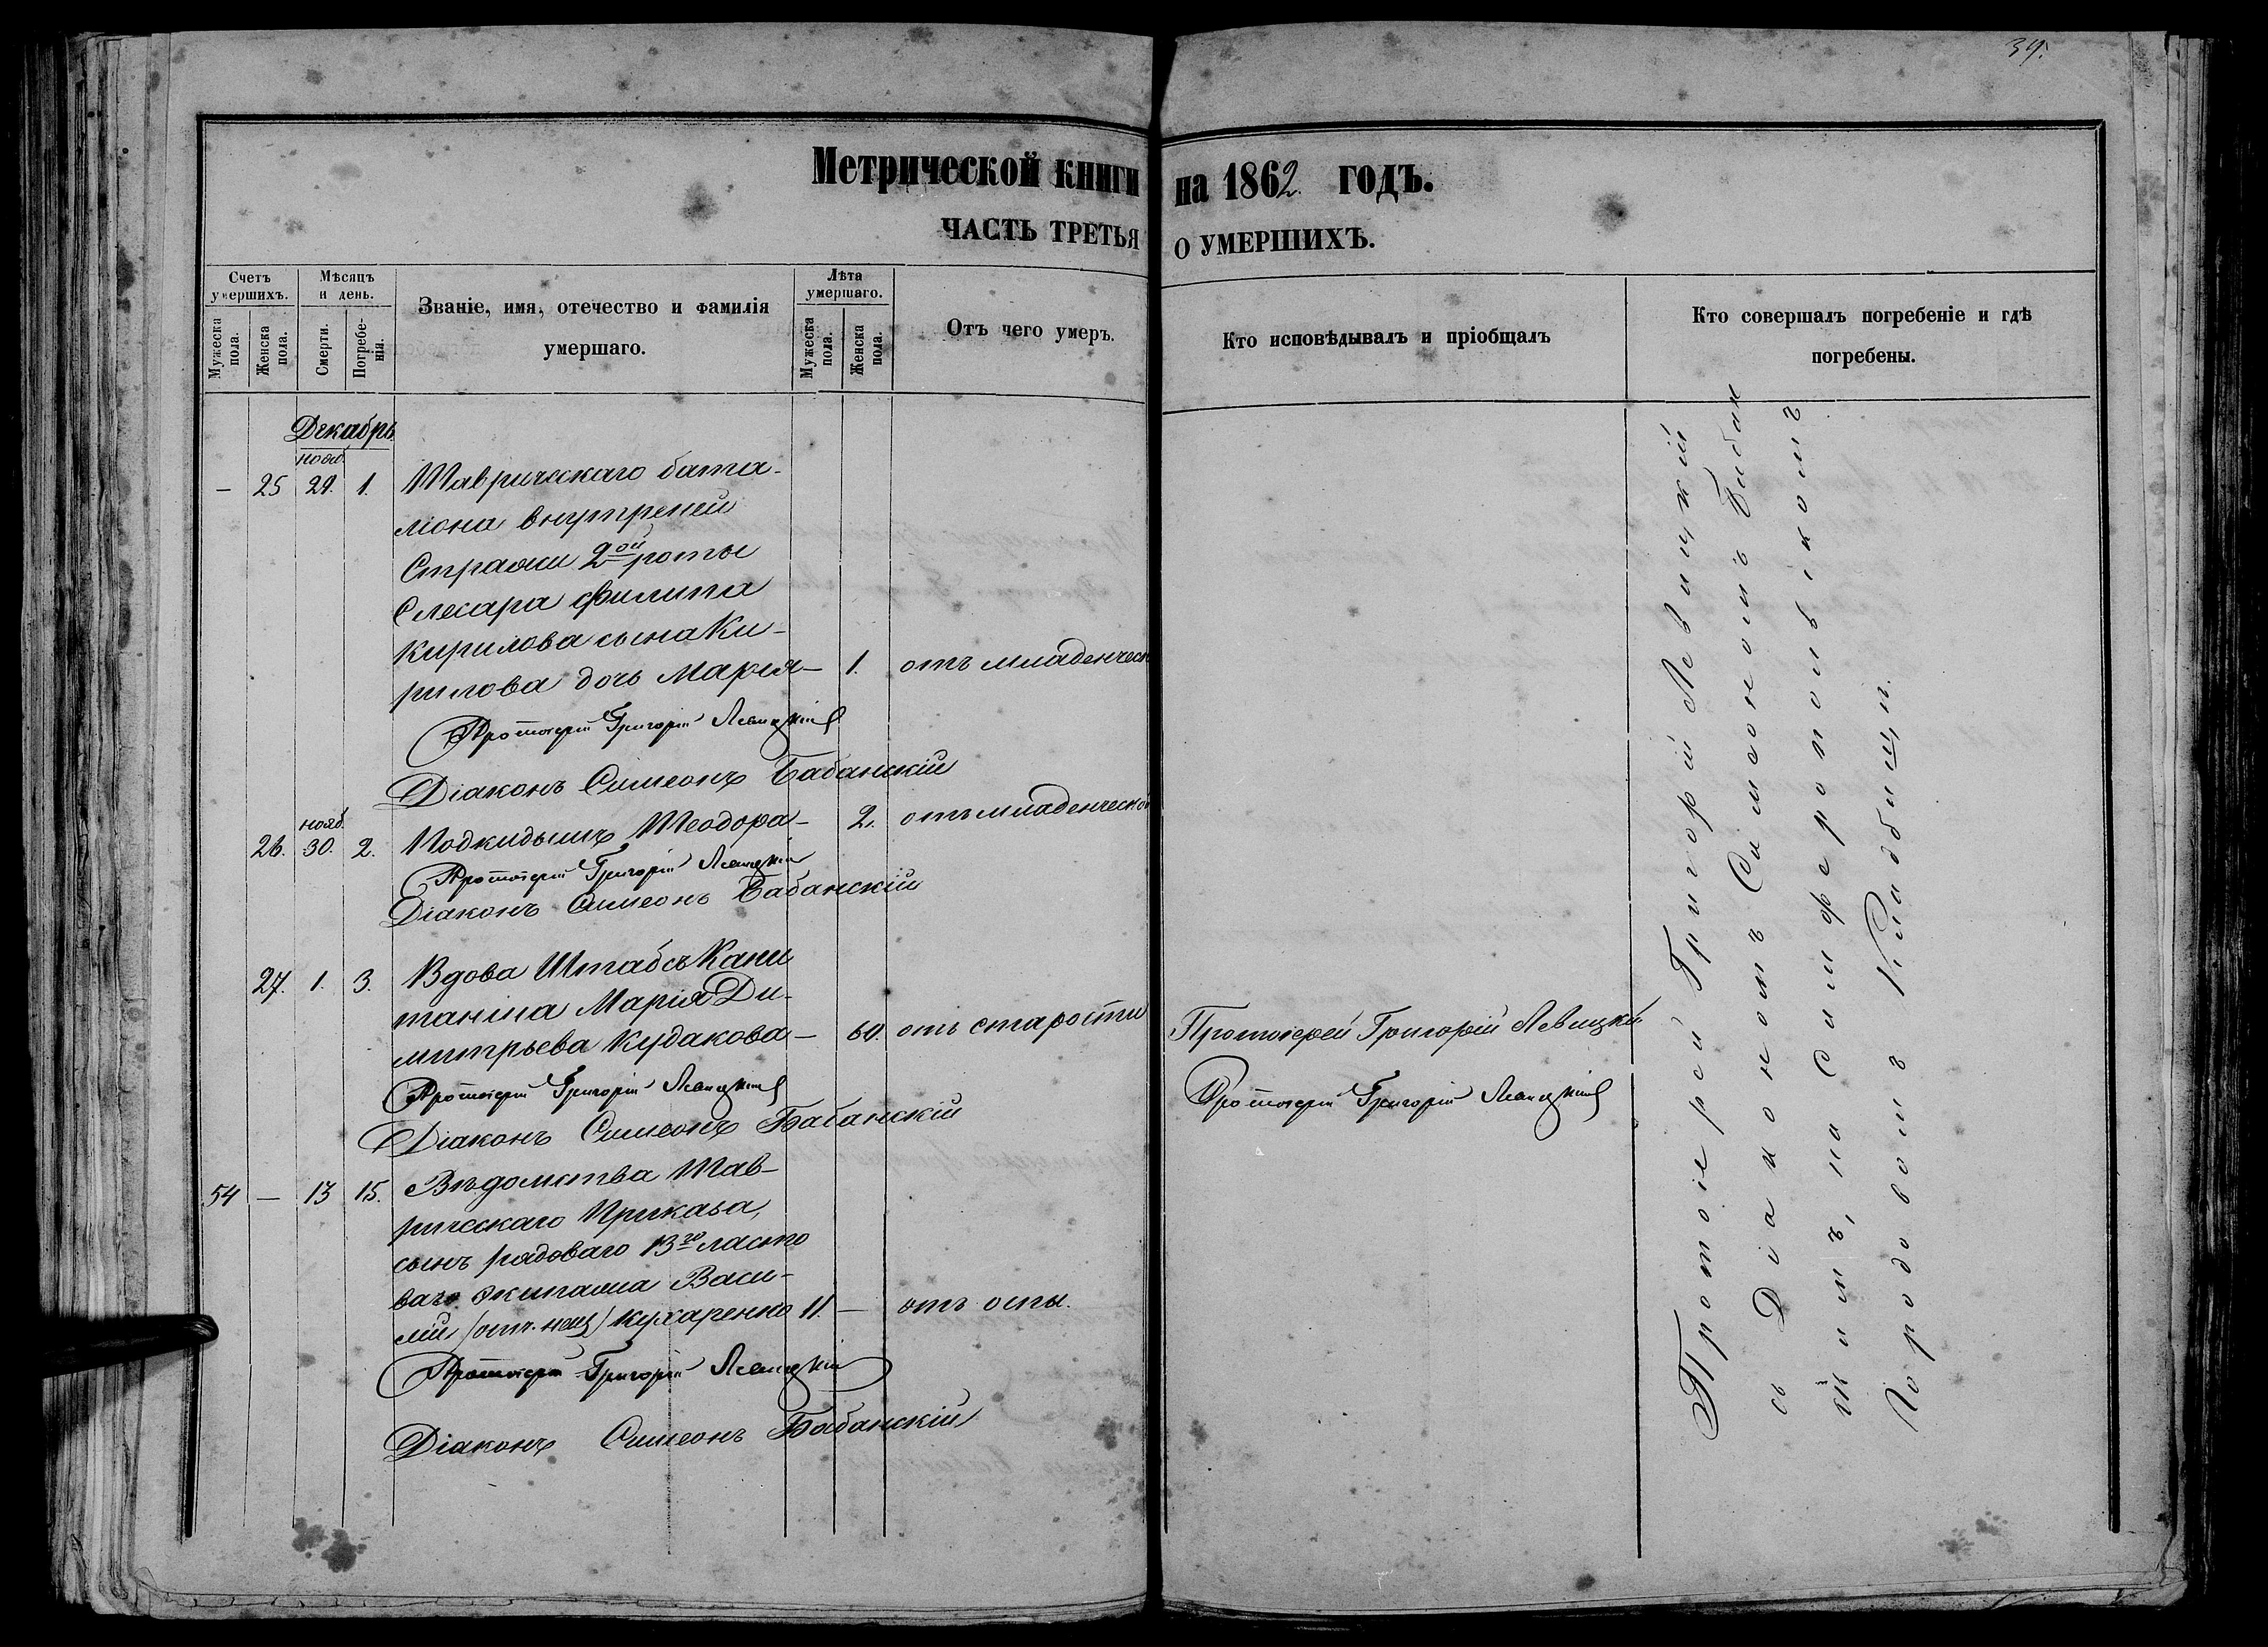 39.
Метрической книги на 1862. годъ.
ЧАСТЬ ТРЕТЬЯ О УМЕРШИХЪ.
Счетъ умершихъ.
Мужеска пола.
Женска пола.
Мѣсяцъ и день.
Смерти.
Погребенія.
Званіе, имя, отечество и фамилія
умершаго.
Лѣта умершаго.
Мужеска пола.
Женска пола.
Отъ чего умеръ.
Кто исповѣдывалъ и пріобщалъ
Кто совершалъ погребеніе и гдѣ
погребены.
Декабрь
нояб.
— 25 29. 1. Таврическаго бата-
ліона внутреней
Стражи 2ой роты
Слесара Филипа
Кирилова сына Ки-
рилова дочь Марія — 1. отъ младенческ
Протоіерей Григорій Левицкій
Діаконъ Симеонъ Бабанскій
нояб.
26. 30. 2. Подкидышъ Теодора — 2. отъ младенческой
Протоіерей Григорій Левицкій
Діаконъ Симеонъ Бабанскій
27. 1. 3. Вдова Штабсъ Капи
танша Марія Ди-
митрьева Кудакова — 60. отъ старости Протоіерей Григорій Левицкій
Протоіерей Григорій Левицкій Протоіерей Григорій Левицкій
Діаконъ Симеонъ Бабанскій
54 — 13 15. Вѣдомства Тав-
рическаго Приказа,
сынъ рядоваго 13го ласто
ваго экипажа Васи-
лій (отч. неиз) Кухаренко 11. — отъ оспы.
Протоіерей Григорій Левицкій
Діаконъ Симеонъ Бабанскій
Протоіерей Григорій Левицкій
съ Діакономъ Симеономъ Бабан
скимъ, на Симферопольскомъ
Городовомъ Кладбищи.